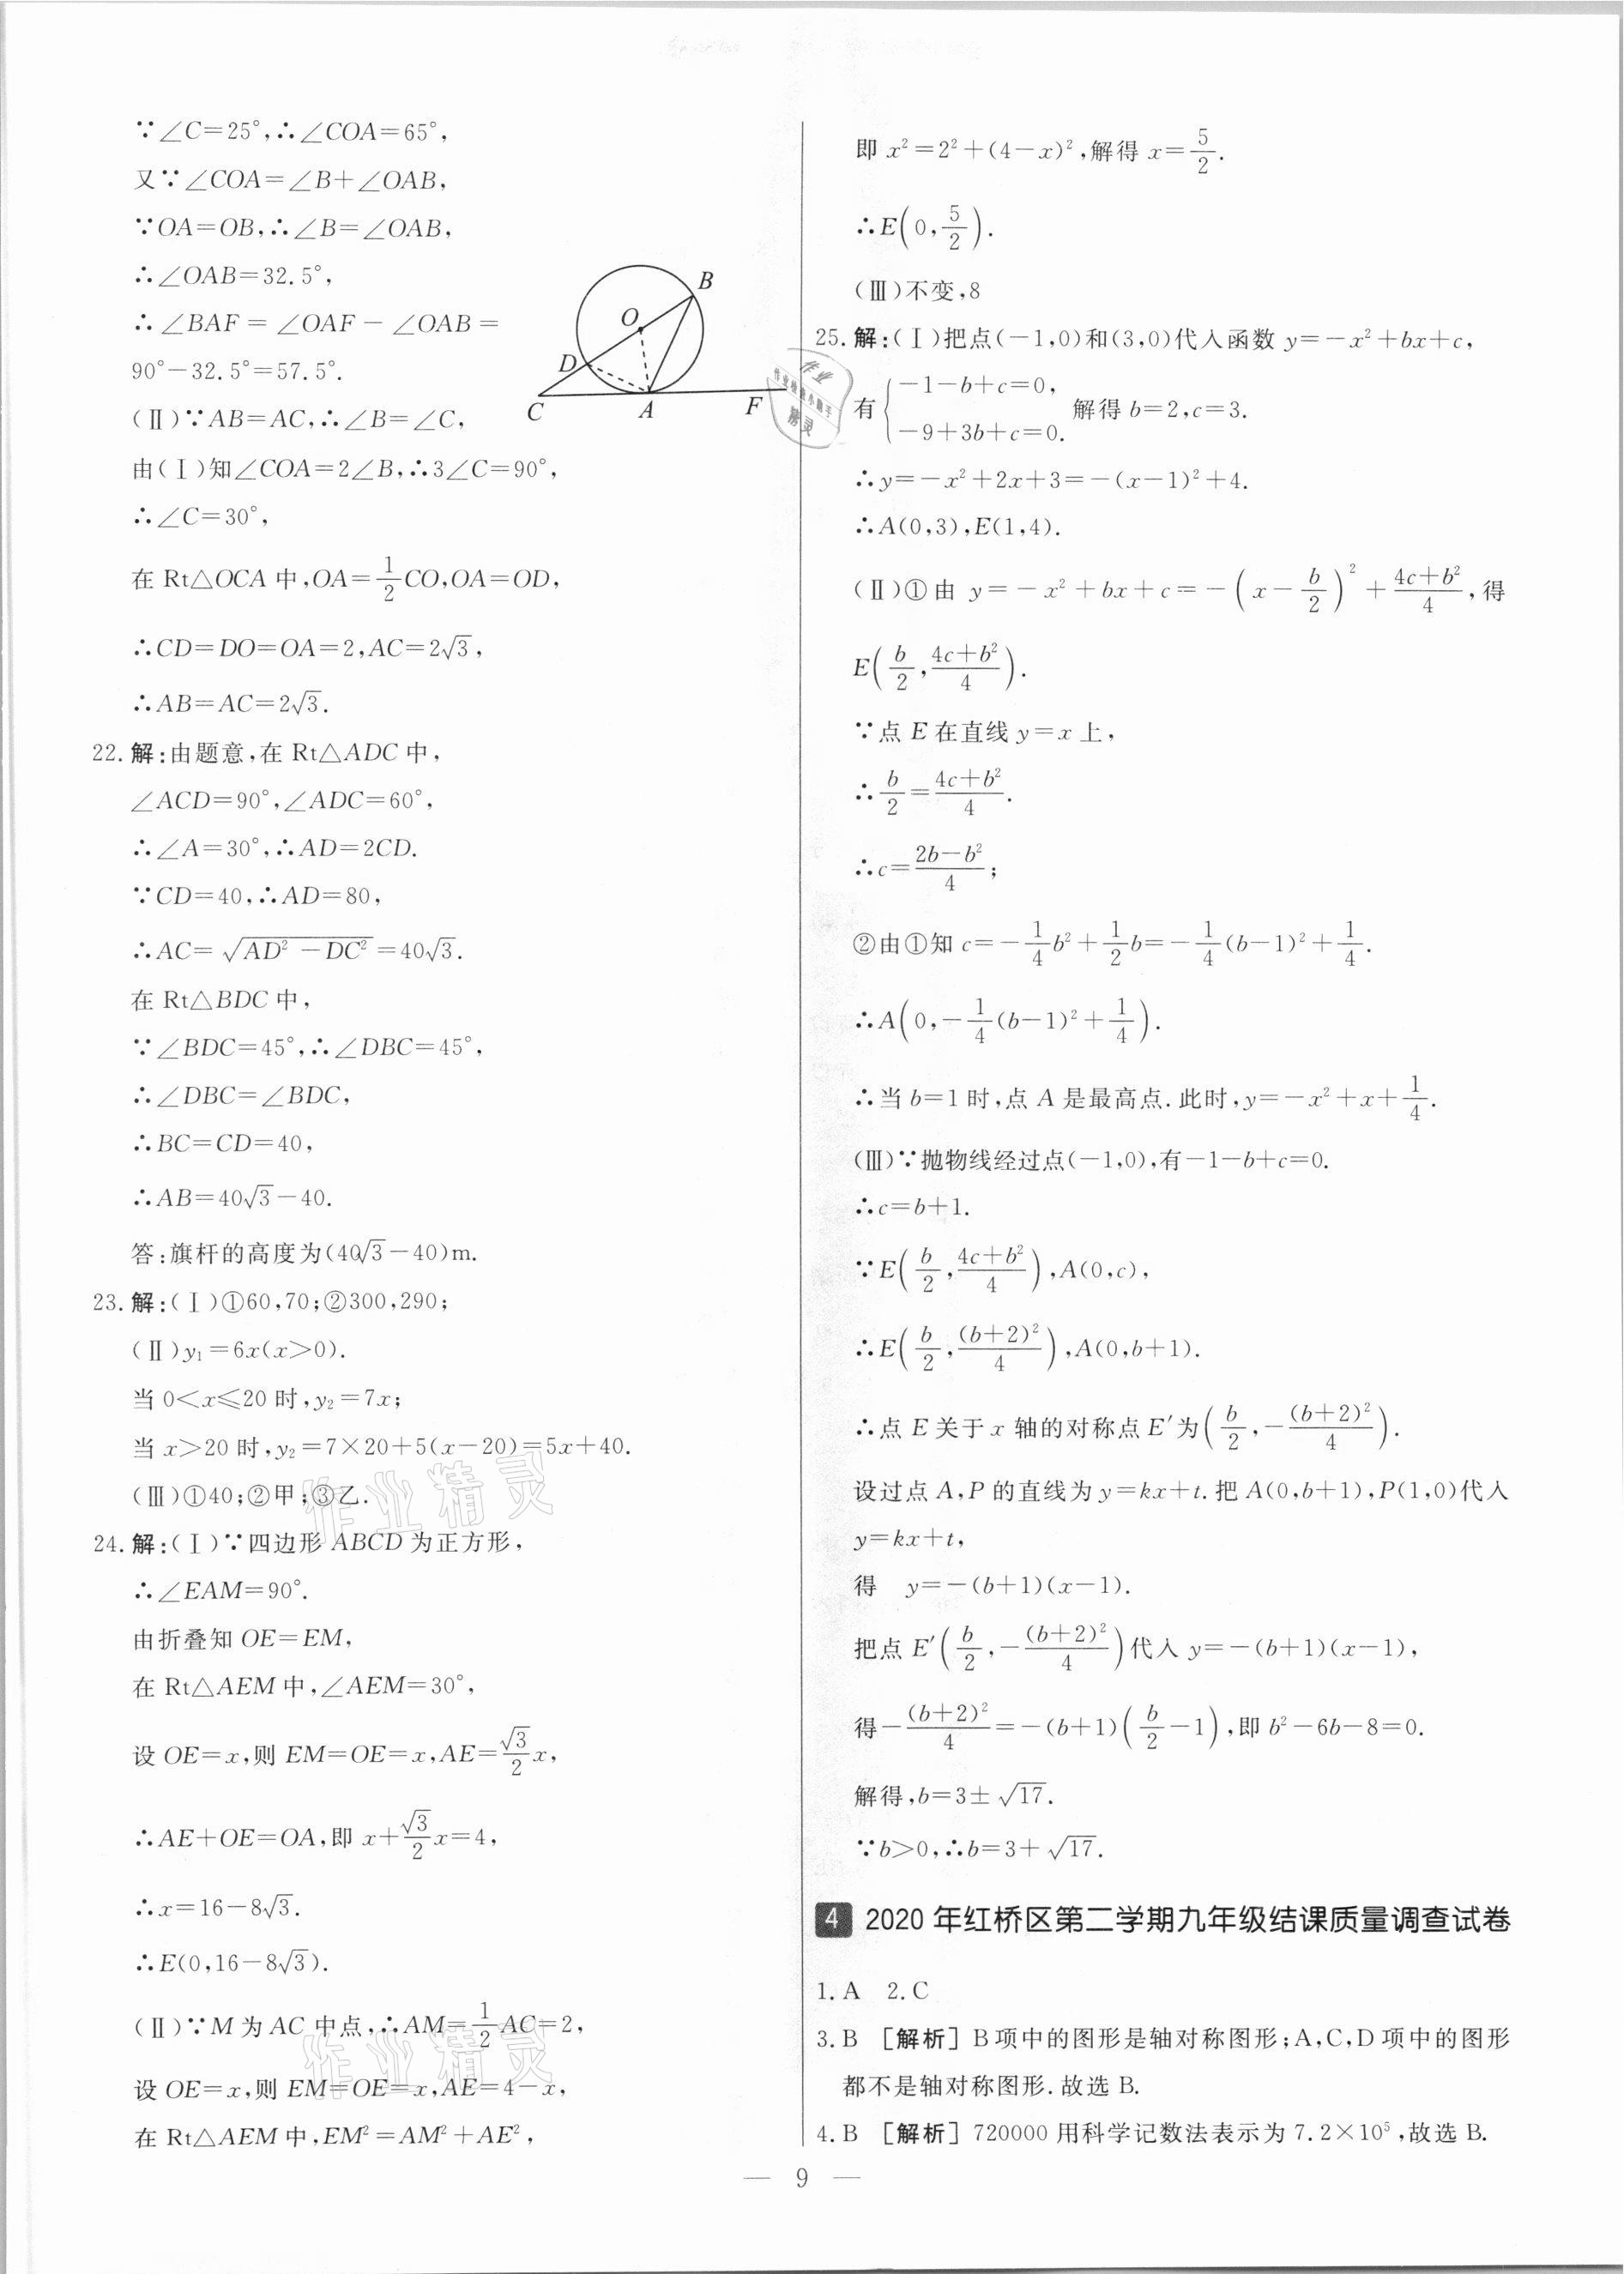 ∵∠C=25°,∴∠COA=65°,
又∵∠COA=∠B+∠OAB,
∵OA=OB,∴∠B=∠OAB,
∴∠OAB=32.5°,
∴∠BAF=∠OAF-∠OAB=
90°-32.5°=57.5°.
(Ⅱ)∵AB=AC,∴∠B=∠C,
由(Ⅰ)知∠COA=2∠B,∴3∠C=90°,
∴∠C=30°,
在 Rt△OCA 中,OA=\frac{1}{2}CO,OA=OD,
∴CD=DO=OA=2,AC=2√3,
∴AB=AC=2√3.
B
O
D
C
A
F
22.解:由题意,在 Rt△ADC 中,
∠ACD=90°,∠ADC=60°,
∴∠A=30°,∴AD=2CD.
∵CD=40,∴AD=80,
∴AC=√(AD²-DC²)=40√3.
在 Rt△BDC 中,
∵∠BDC=45°,∴∠DBC=45°,
∴∠DBC=∠BDC,
∴BC=CD=40,
∴AB=40√3-40.
答:旗杆的高度为(40√3-40)m.
23.解:(Ⅰ)①60,70;②300,290;
(Ⅱ)y₁=6x(x>0).
当 0<x≤20 时,y₂=7x;
当 x>20 时,y₂=7×20+5(x-20)=5x+40.
(Ⅲ)①40;②甲;③乙.
24.解:(Ⅰ)∵四边形 ABCD 为正方形,
∴∠EAM=90°.
由折叠知 OE=EM,
在 Rt△AEM 中,∠AEM=30°,
设 OE=x,则 EM=OE=x,AE=\frac{√3}{2}x,
∴AE+OE=OA,即 x+\frac{√3}{2}x=4,
∴x=16-8√3.
∴E(0,16-8√3).
(Ⅱ)∵M 为 AC 中点,∴AM=\frac{1}{2}AC=2,
设 OE=x,则 EM=OE=x,AE=4-x,
在 Rt△AEM 中,EM²=AM²+AE²,
即 x²=2²+(4-x)²,解得 x=\frac{5}{2}.
∴E(0,\frac{5}{2}).
(Ⅲ)不变,8
25.解:(Ⅰ)把点(-1,0)和(3,0)代入函数 y=-x²+bx+c,
有{-1-b+c=0, -9+3b+c=0. 解得 b=2,c=3.
∴y=-x²+2x+3=-(x-1)²+4.
∴A(0,3),E(1,4).
(Ⅱ)①由 y=-x²+bx+c=-(x-\frac{b}{2})²+\frac{4c+b²}{4},得
E(\frac{b}{2},\frac{4c+b²}{4}).
∵点 E 在直线 y=x 上,
∴\frac{b}{2}=\frac{4c+b²}{4}.
∴c=\frac{2b-b²}{4};
②由①知 c=-\frac{1}{4}b²+\frac{1}{2}b=-\frac{1}{4}(b-1)²+\frac{1}{4}.
∴A(0,-\frac{1}{4}(b-1)²+\frac{1}{4}).
∴当 b=1 时,点 A 是最高点.此时,y=-x²+x+\frac{1}{4}.
(Ⅲ)∵抛物线经过点(-1,0),有-1-b+c=0.
∴c=b+1.
∵E(\frac{b}{2},\frac{4c+b²}{4}),A(0,c),
∴E(\frac{b}{2},\frac{(b+2)²}{4}),A(0,b+1).
∴点 E 关于 x 轴的对称点 E′为(\frac{b}{2},-\frac{(b+2)²}{4}).
设过点 A,P 的直线为 y=kx+t.把 A(0,b+1),P(1,0)代入
y=kx+t,
得 y=-(b+1)(x-1).
把点 E′(\frac{b}{2},-\frac{(b+2)²}{4})代入 y=-(b+1)(x-1),
得-\frac{(b+2)²}{4}=-(b+1)(\frac{b}{2}-1),即 b²-6b-8=0.
解得,b=3±√17.
∵b>0,∴b=3+√17.
4 2020 年红桥区第二学期九年级结课质量调查试卷
1.A 2.C
3.B [解析] B 项中的图形是轴对称图形;A,C,D 项中的图形
都不是轴对称图形.故选 B.
4.B [解析] 720000 用科学记数法表示为 7.2×10⁵,故选 B.
— 9 —
作业精灵
作业精灵
作业
作业检查小助手
精灵